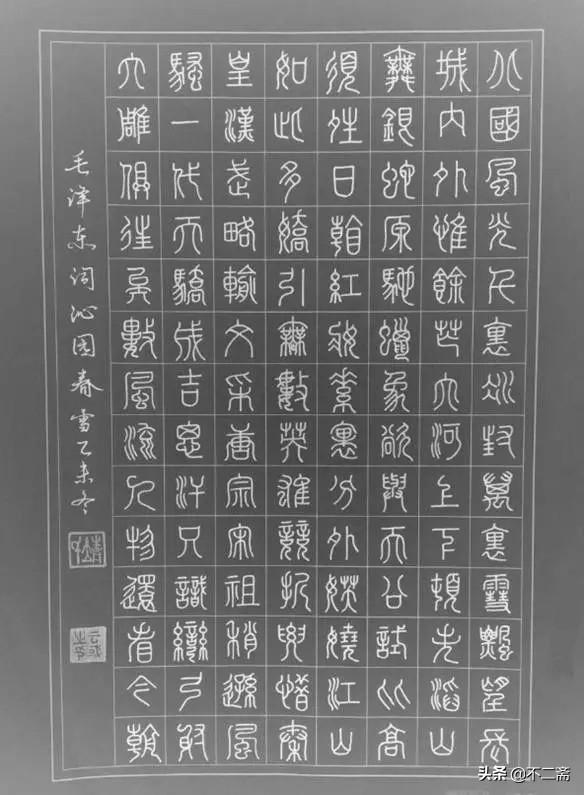 北國風光千裏冰封萬裏雪飄望長
城內外惟餘莽大河上下頓失滔山
舞銀蛇原馳蠟象欲與天公試比高
須晴日看紅妝素裹分外妖嬈江山
如此多嬌引無數英雄競折腰惜秦
皇漢武略輸文采唐宗宋祖稍遜風
騷一代天驕成吉思汗只識彎弓射
大雕俱往矣數風流人物還看今朝
毛泽东词沁园春雪乙未冬
头条 @不二斋